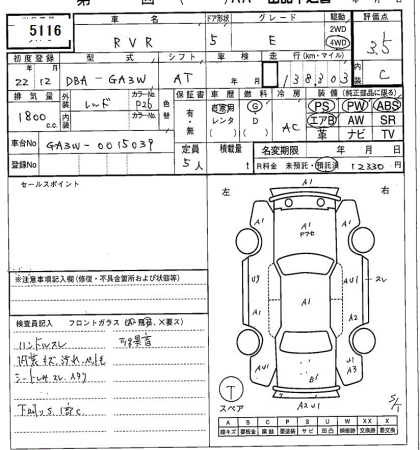 5116
車名
ドア形状
グレード
駆動
評価点
RVR
5
E
2WD
4WD
3.5
初度登録
型式
シフト
車検
走行(km・マイル)
内装
22年12月
DBA-GA3W
AT
年 月
138303
C
排気量
外装
カラーNo.
色替
内装
カラーNo.
保証書
車歴
燃料
冷房
装備(純正部品に限る)
1800c.c.
レッド
P26
有・無
自家用
レンタ
G
D
AC
PS
PW
ABS
エアB
AW
SR
革
ナビ
TV
車台No
GA3W-0015039
定員
積載量
名変期限
年 月 日
登録No
5人
t
R料金 未預託・預託済
12330円
セールスポイント
左
右
A1
A1
A1
A1
P
U3
A1
AU1
スレ
A1
A2
AU1
B1
U1
A3
A2U1
S/T
※注意事項記入欄(修復・不具合箇所および状態等)
検査員記入
フロントガラス
ハンドルスレ
内装キズ汚れ
シート
T
スペア
A
B
C
P
S
U
W
XX
X
線キズ
要板金
腐蝕
要塗装
サビ
凹凸
補修跡
交換跡
要交換